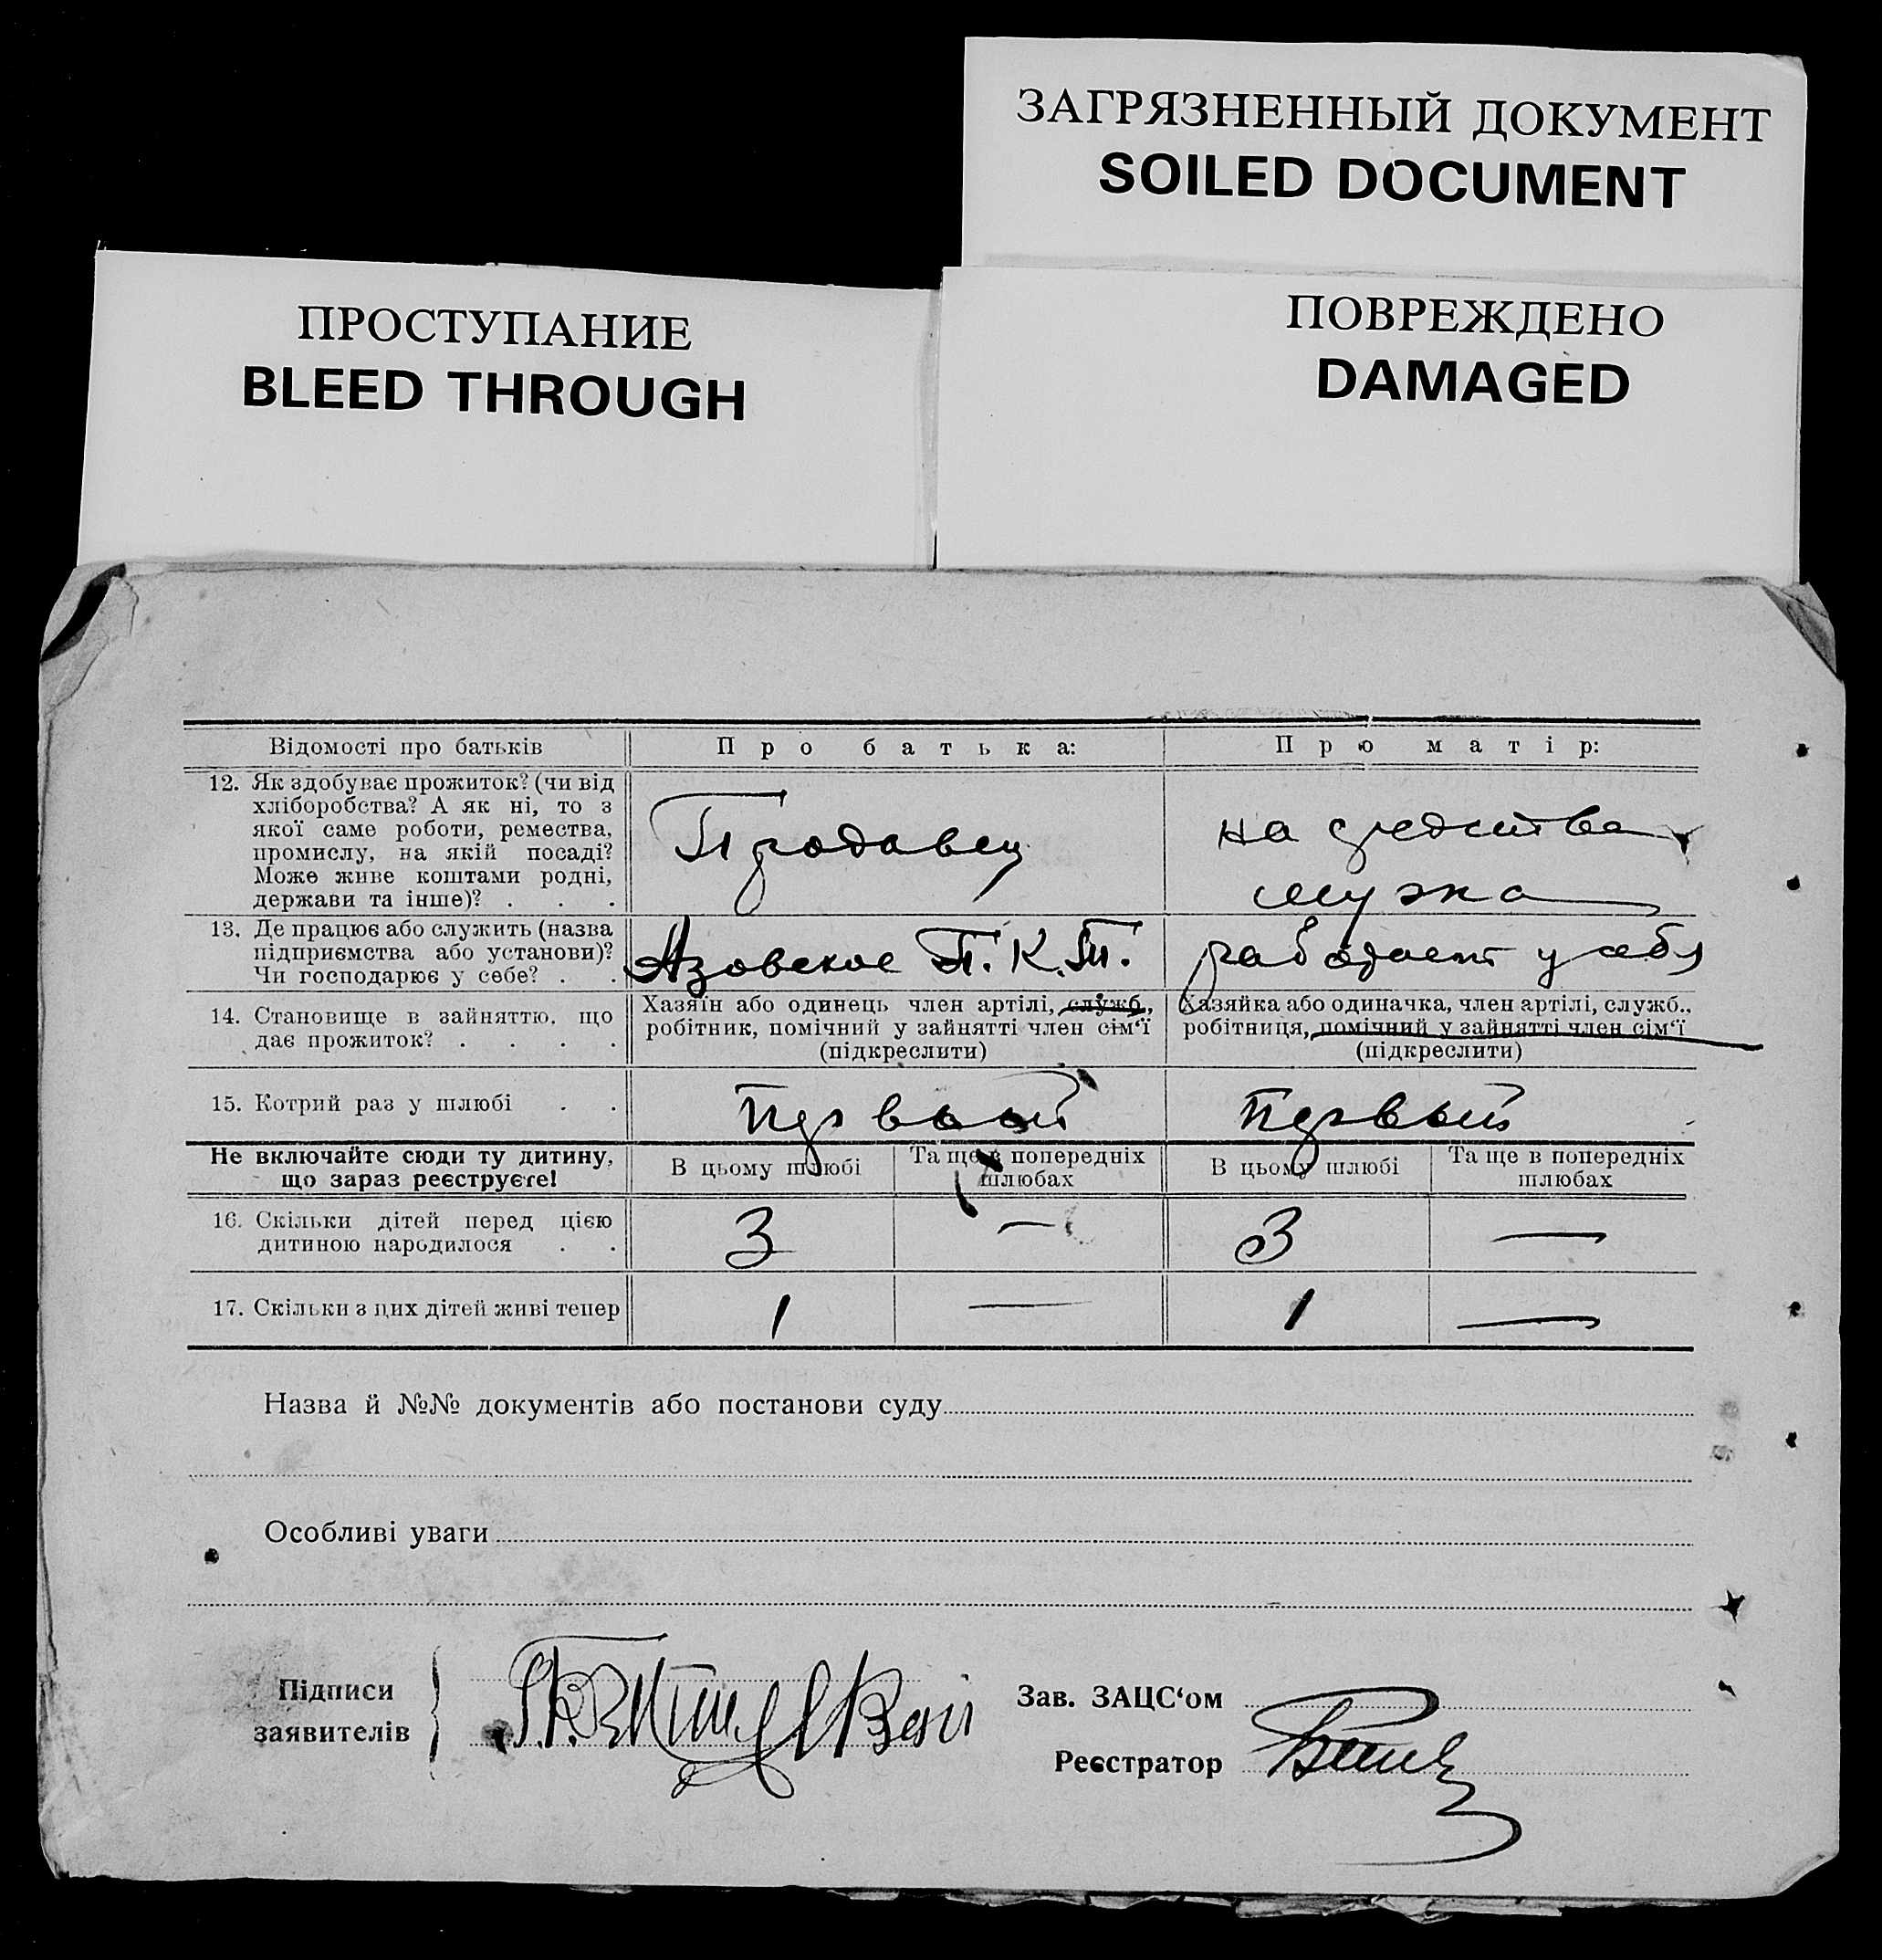 ЗАГРЯЗНЕННЫЙ ДОКУМЕНТ
SOILED DOCUMENT
ПРОСТУПАНИЕ
BLEED THROUGH
ПОВРЕЖДЕНО
DAMAGED
Відомості про батьків
Про батька:
Про матір:
12. Як здобуває прожиток? (чи від
хліборобства? А як ні, то з
якої саме роботи, ремества,
промислу, на якій посаді?
Може живе коштами родні,
держави та інше)? . . .
Продавец
на средства
мужа
13. Де працює або служить (назва
підприємства або установи)?
Чи господарює у себе? . .
Азовское П.К.Т.
работает у себя
14. Становище в зайняттю, що
дає прожиток? . . . .
Хазяїн або одинець член артілі, служб.,
робітник, помічний у зайнятті член сім'ї
(підкреслити)
Хазяйка або одиначка, член артілі, служб.,
робітниця, помічний у зайнятті член сім'ї
(підкреслити)
15. Котрий раз у шлюбі . .
Первый
Первый
Не включайте сюди ту дитину,
що зараз реєструєте!
В цьому шлюбі
Та ще в попередніх
шлюбах
В цьому шлюбі
Та ще в попередніх
шлюбах
16. Скільки дітей перед цією
дитиною народилося . .
3
—
3
—
17. Скільки з цих дітей живі тепер
1
—
1
—
Назва й №№ документів або постанови суду
Особливі уваги
Підписи
заявителів
Зав. ЗАЦС'ом
Реєстратор